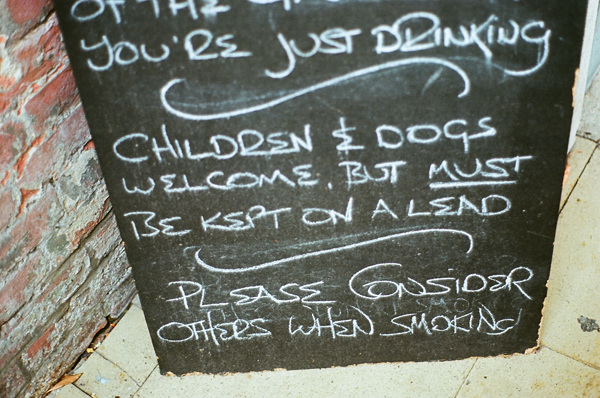 OF THE
YOU'RE JUST DRINKING
CHILDREN & DOGS
WELCOME. BUT MUST
BE KEPT ON A LEAD
PLEASE CONSIDER
OTHERS WHEN SMOKING